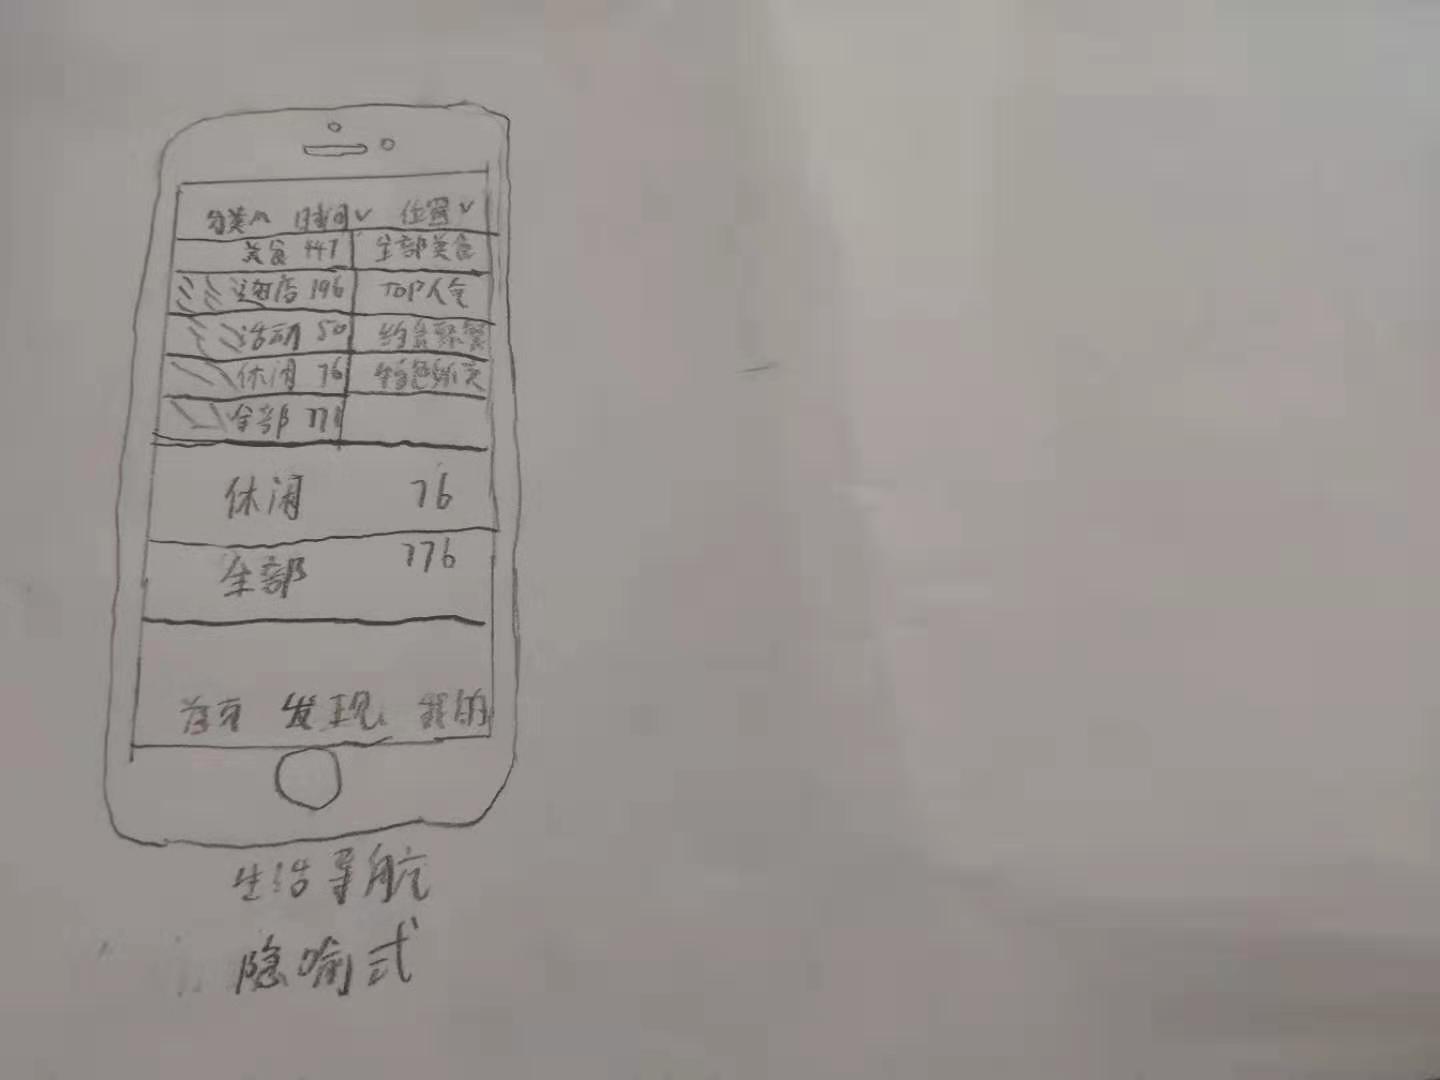 分类 时间 位置
美食 447 全部美食
酒店 196 TOP人气
活动 50 约会聚餐
休闲 76 特色
全部 771
休闲 76
全部 776
首页 发现 我的
生活导航
隐喻式